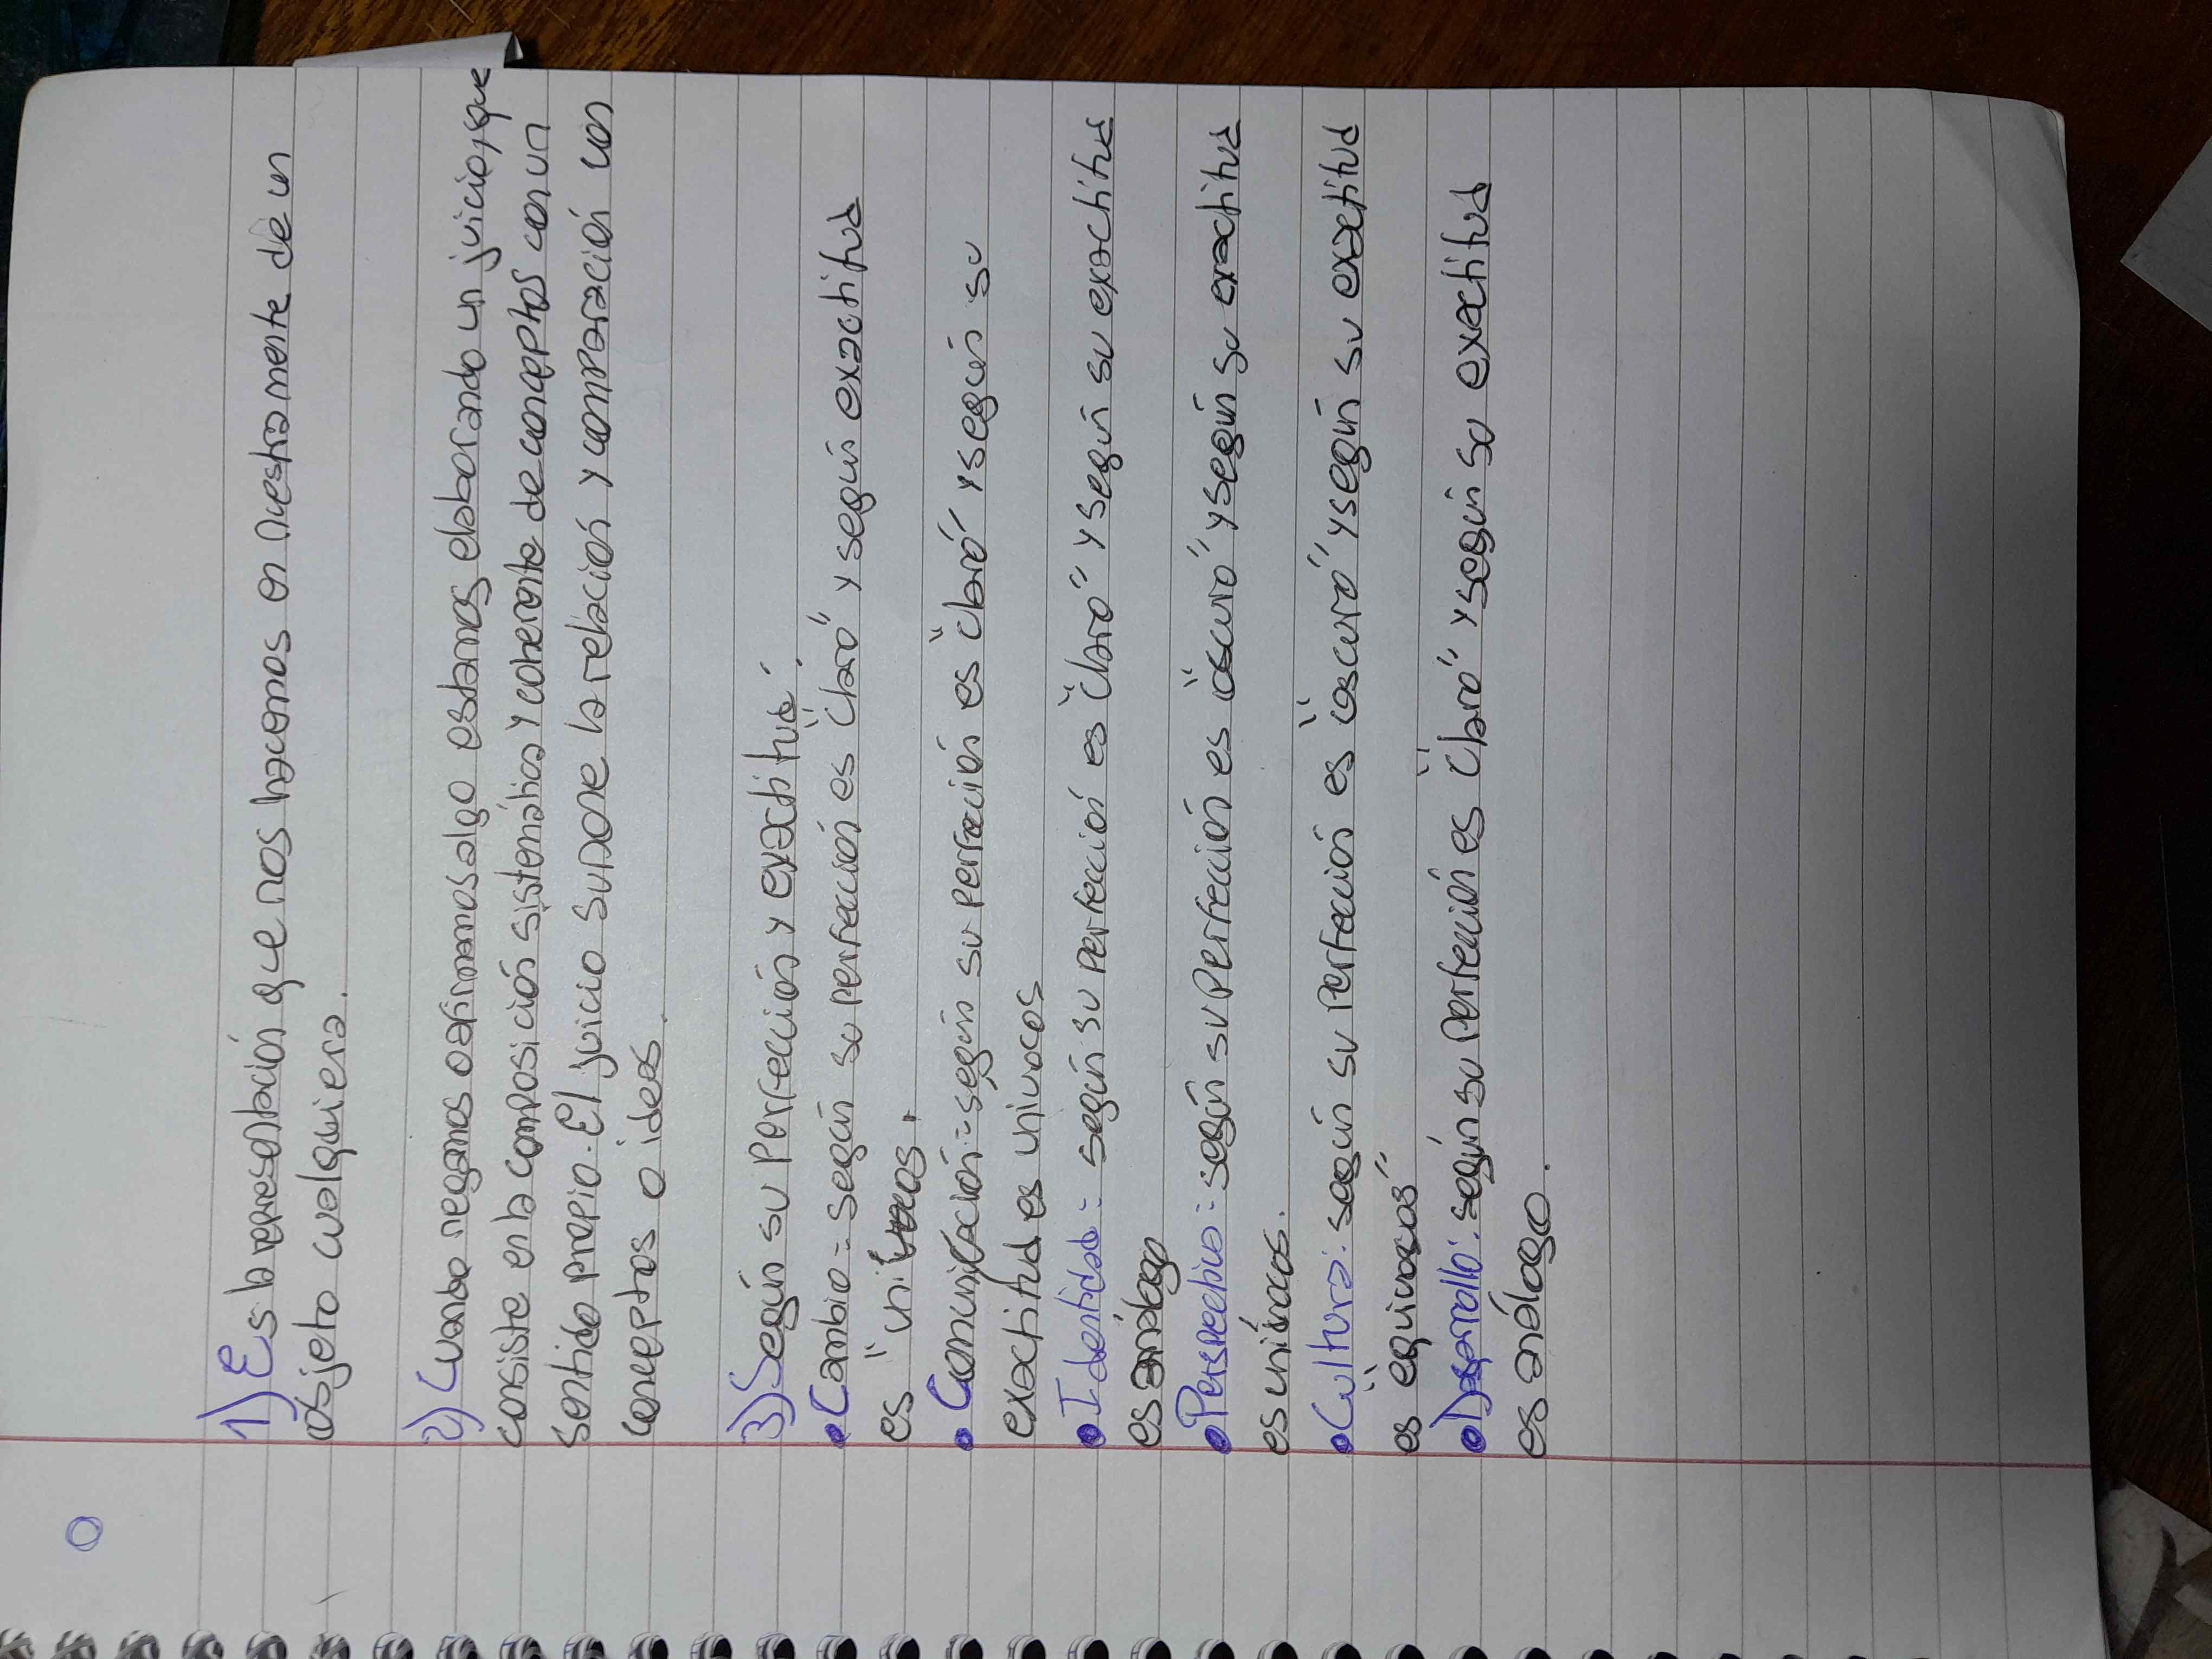 1) Es la representación que nos hacemos en nuestra mente de un
objeto cualquiera.
2) Cuando negamos o afirmamos algo estamos elaborando un juicio, que
consiste en la composición sistemática y coherente de conceptos con un
sentido propio. El juicio supone la relación y comparación con
conceptos o ideas.
3) Según su perfección y exactitud:
• Cambio: según su perfección es "claro" y según exactitud
es "unívocos.
• Comunicación: según su perfección es "claro" y según su
exactitud es univocos
• Identidad: según su perfección es "claro" y según su exactitud
es análogo
• Perspectiva: según su perfección es "oscuro" y según su exactitud
es unívocos.
• Cultura: según su perfección es "oscuro" y según su exactitud
es "equivocos"
• Desarrollo: según su perfeción es "claro" y según su exactitud
es análogo.